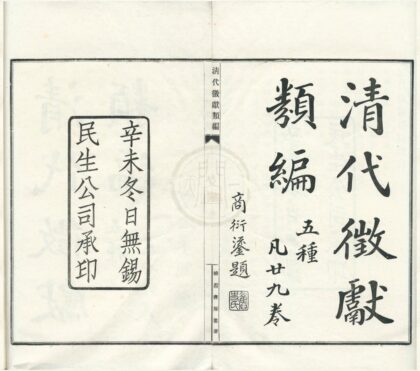 清代徵獻
類編
五種
凡廿九卷
商衍鎏題
清代徵獻類編
辛未冬日無錫
民生公司承印